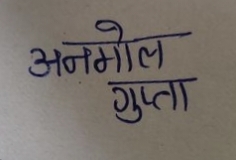 अनमोल
गुप्ता